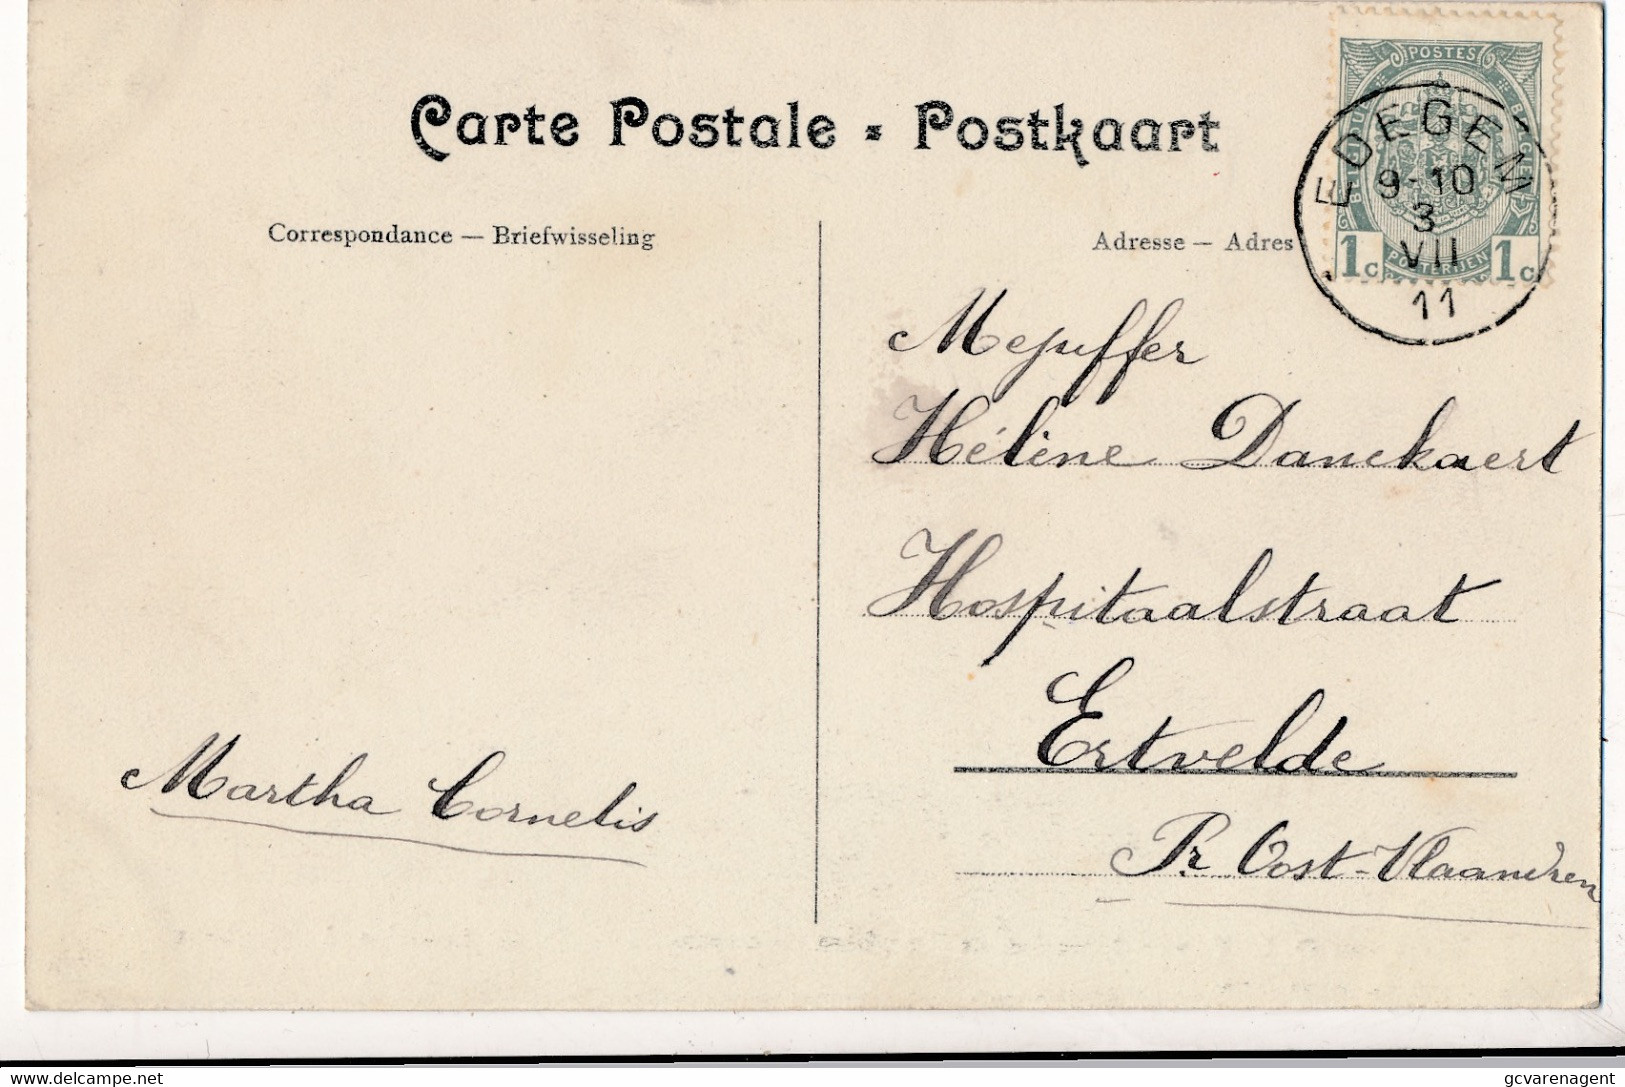 Carte Postale - Postkaart
Correspondance — Briefwisseling
Adresse — Adres
POSTES
EDEGEM
9-10
3
VII
11
1c POSTERIJEN 1c
Mejuffer
Hélène Danckaert
Hospitaalstraat
Ertvelde
Pr Oost-Vlaand'ren
Martha Cornelis
delcampe.net
gcvarenagent